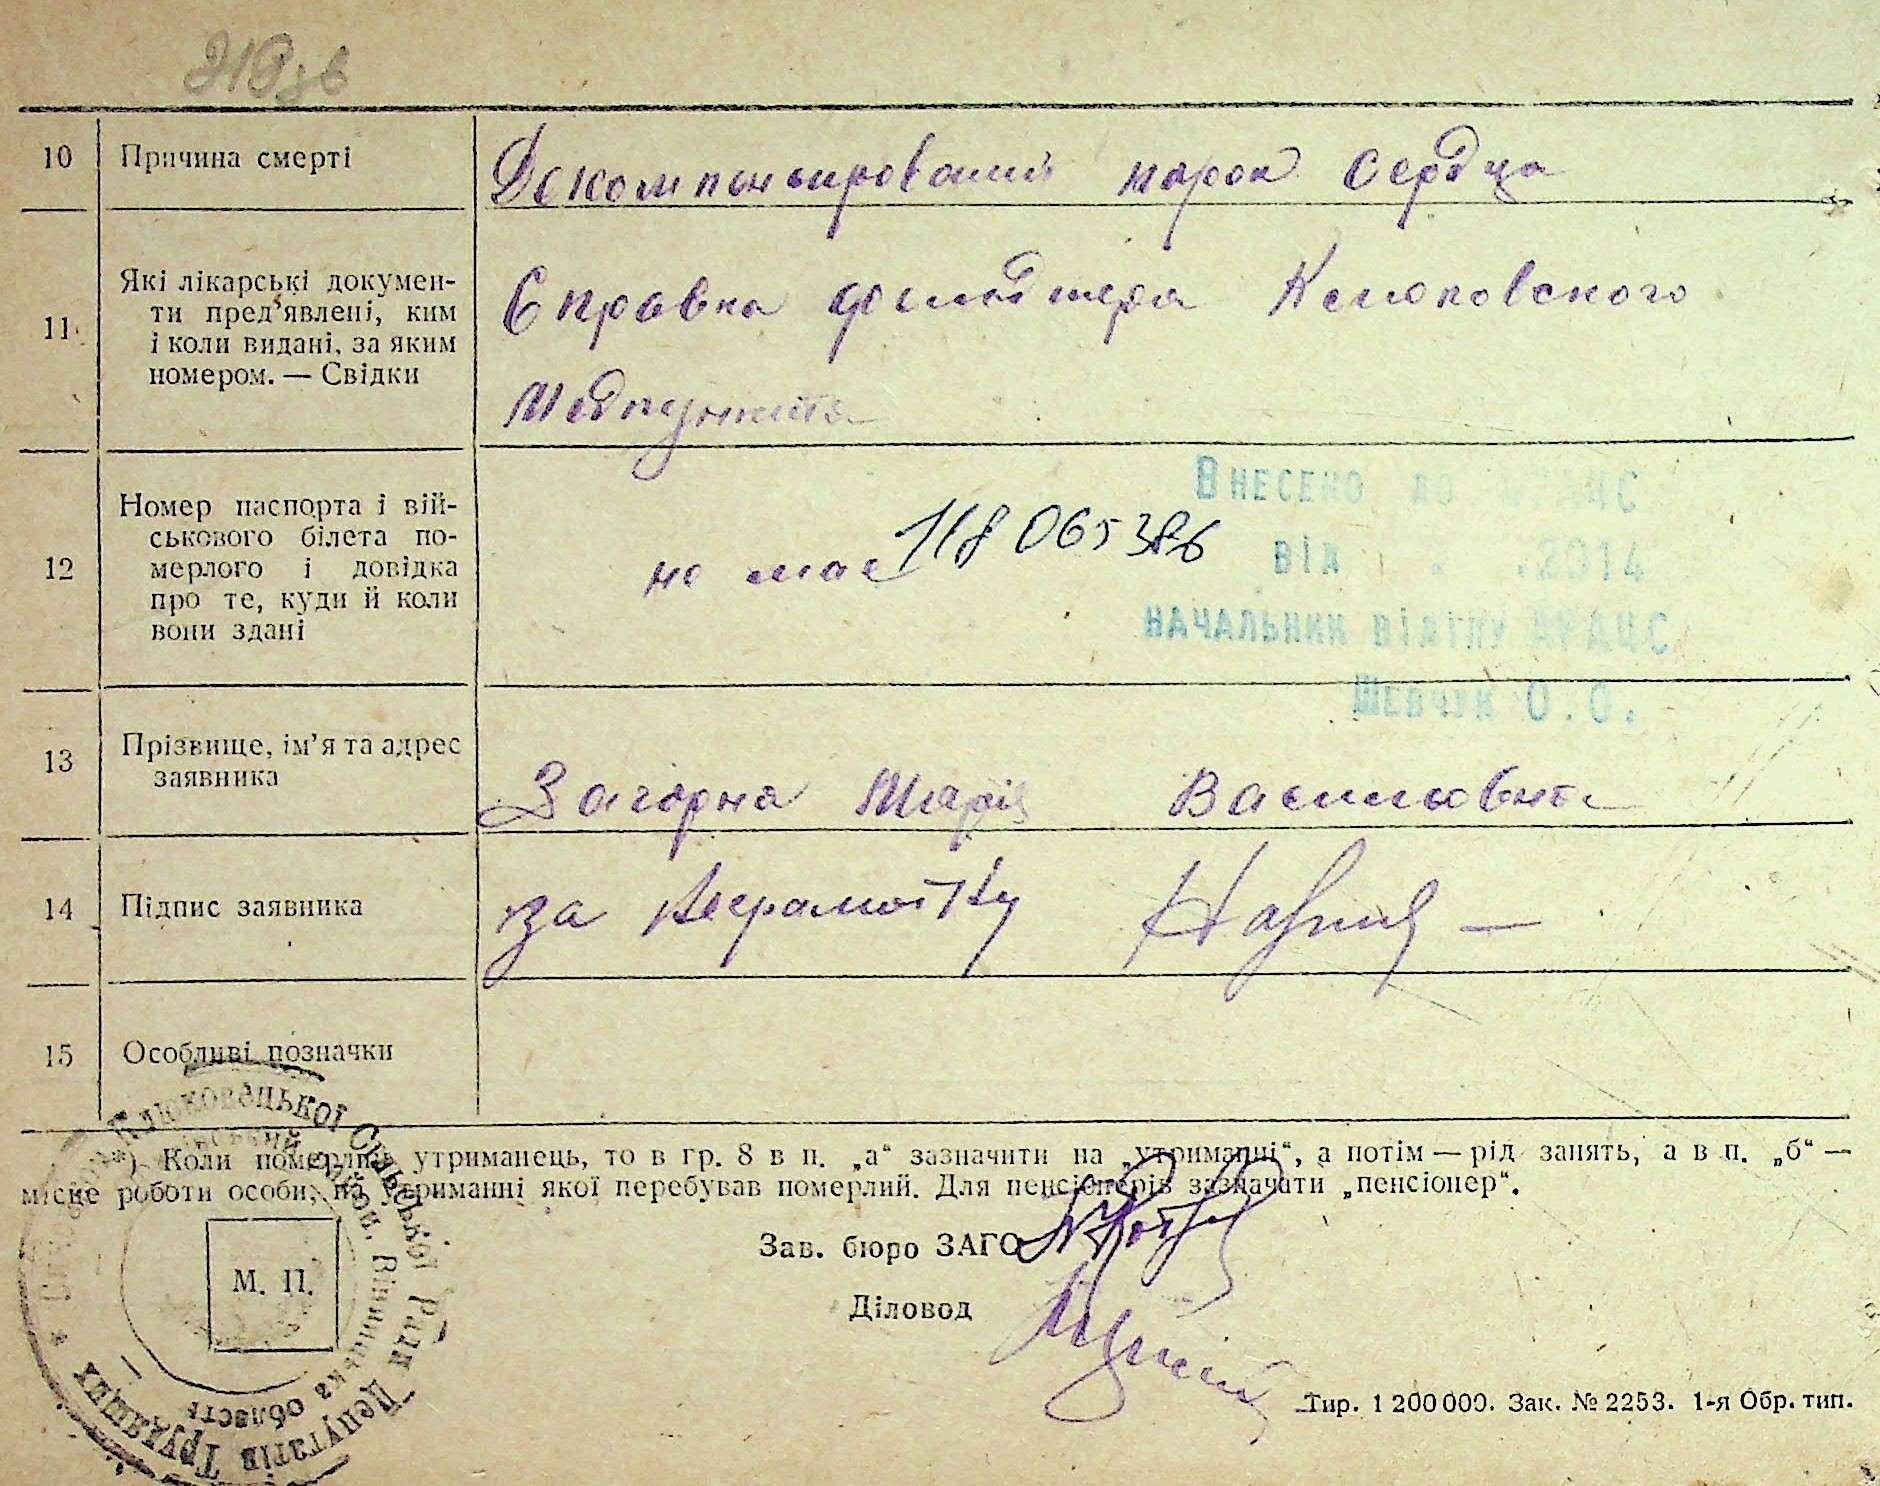 219зв
10 Причина смерті
Декомпенсирований порок сердца
11 Які лікарські докумен-
ти пред'явлені, ким
і коли видані, за яким
номером. — Свідки
Справка фельдшера Клюковского
Медпункта
12 Номер паспорта і вій-
ськового білета по-
мерлого і довідка
про те, куди й коли
вони здані
не має 118 065386
Внесено до ДРАЦС
від . .2014
начальник відділу ДРАЦС
Шевчук О.О.
13 Прізвище, ім'я та адрес
заявника
Загорна Марія Васильовна
14 Підпис заявника
за неграмотну
15 Особливі позначки
*) Коли померлий утриманець, то в гр. 8 в п. „а“ зазначити на „утриманні“, а потім — рід занять, а в п. „б“ —
місце роботи особи, на утриманні якої перебував померлий. Для пенсіонерів зазначати „пенсіонер“.
Зав. бюро ЗАГС
Діловод
М. П.
Клюковецької Сільської Ради Депутатів Трудящих
район, Вінницька область
Тир. 1 200 000. Зак. № 2253. 1-я Обр. тип.